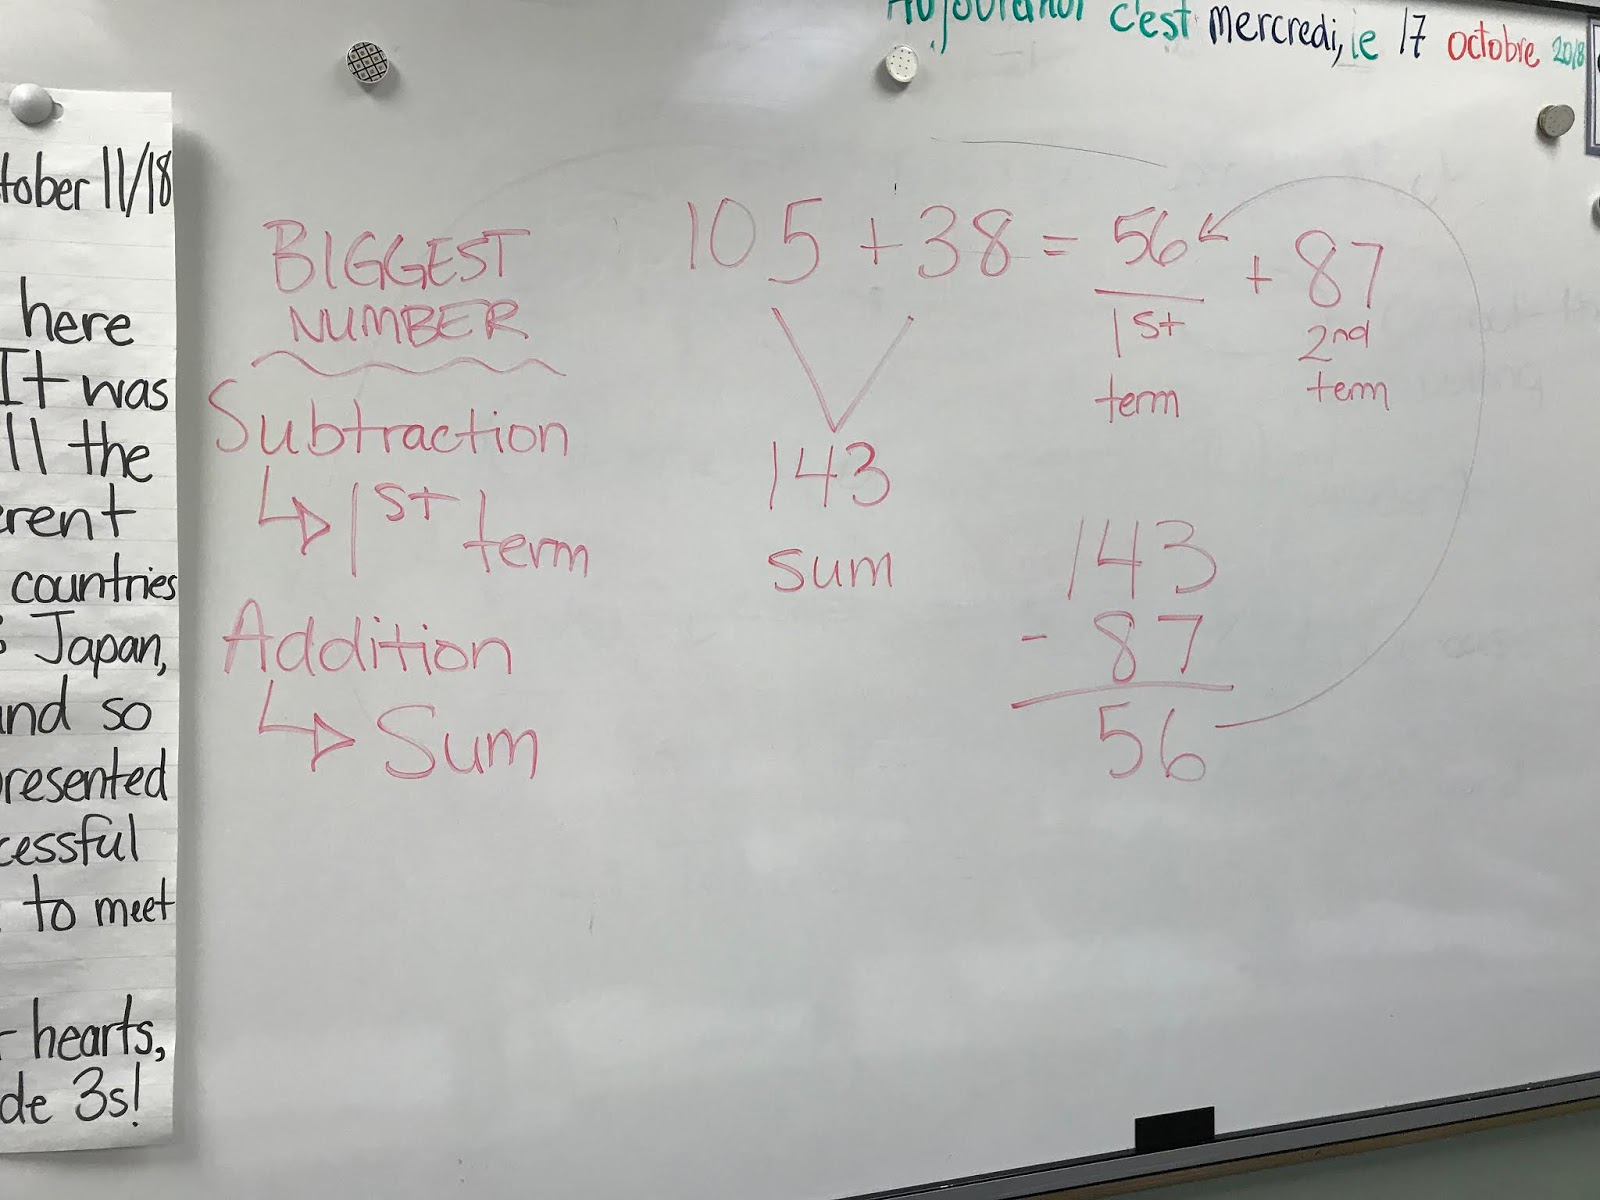 Aujourd'hui c'est mercredi, le 17 octobre 2018
tober 11/18
here
It was
ll the
erent
countries
Japan,
and so
presented
cessful
to meet
hearts,
de 3s!
BIGGEST
NUMBER
Subtraction
↳ 1st term
Addition
↳ Sum
105 + 38 = 56 + 87
1st term
2nd term
143
sum
143
- 87
56